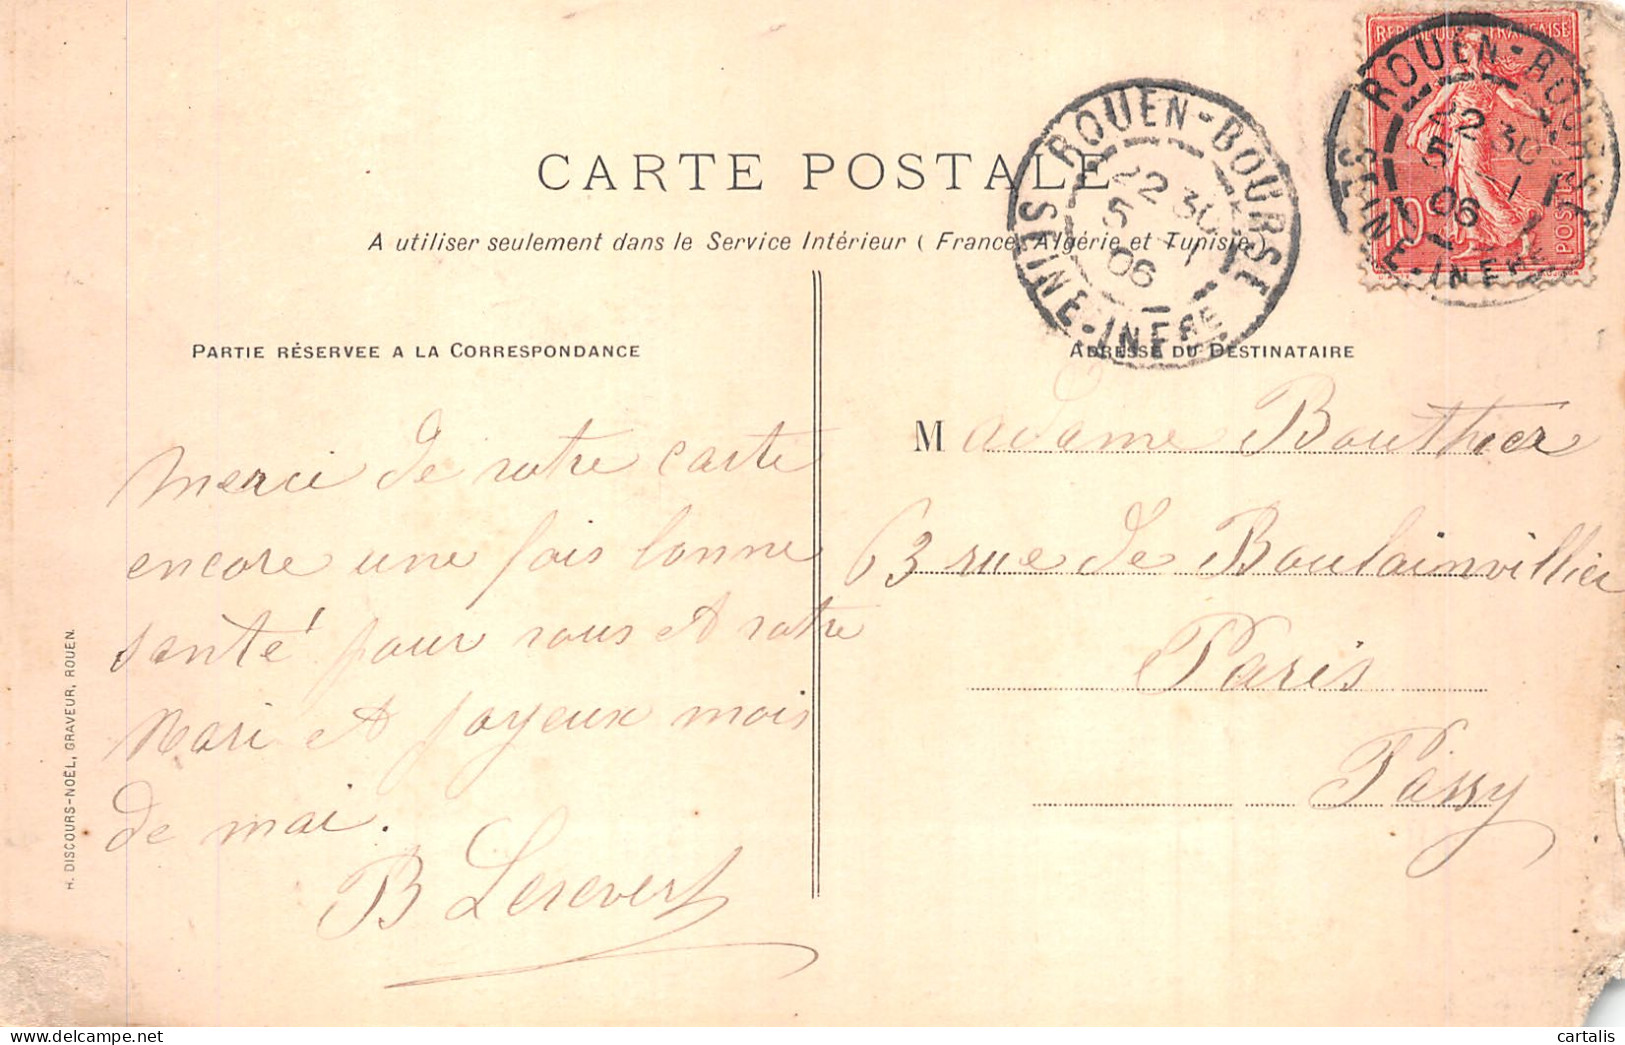 CARTE POSTALE
A utiliser seulement dans le Service Intérieur ( France, Algérie et Tunisie )
PARTIE RÉSERVEE A LA CORRESPONDANCE
ADRESSE DU DESTINATAIRE
Merci de votre carte
encore une fois bonne
santé pour vous et votre
Mari et joyeux mois
de mai.
B
Madame Bouthier
63 rue de Boulainvillier
Paris
Passy
H. DISCOURS-NOËL, GRAVEUR, ROUEN.
ROUEN-BOURSE
22 30
5 -1
06
SEINE-INFRE
REPUBLIQUE FRANÇAISE
10
POSTES
ROUEN-BOURSE
22 30
5 -1
06
SEINE-INFRE
cartalis